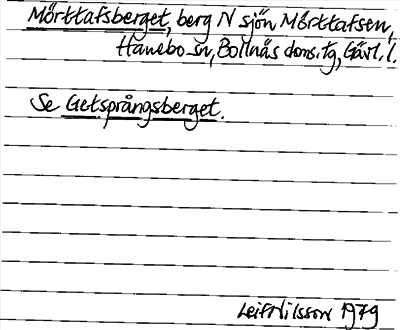 Mörttafsberget, berg N sjön Mörttafsen,
Hanebo sn, Bollnäs doms.tg, Gävl. l.
Se Getsprångsberget.
Leif Nilsson 1979